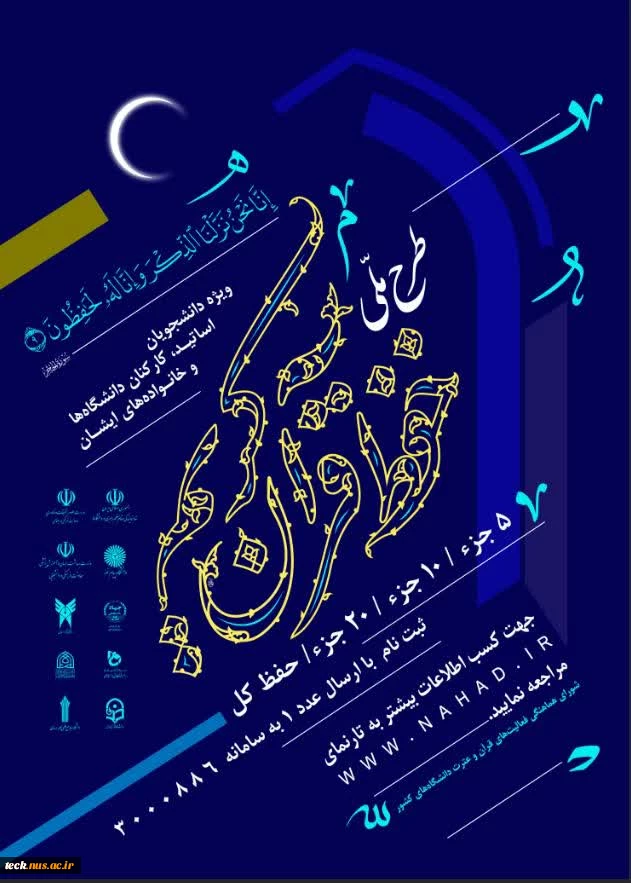 إِنَّا نَحْنُ نَزَّلْنَا الذِّكْرَ وَ إِنَّا لَهُ لَحَافِظُونَ
۹
ویژه دانشجویان
اساتید، کارکنان دانشگاه‌ها
و خانواده‌های ایشان
طرح ملّی
حفظ قرآن کریم
۵ جزء / ۱۰ جزء / ۲۰ جزء / حفظ کل
ثبت نام با ارسال عدد ۱ به سامانه ۳۰۰۰۸۸۶
جهت کسب اطلاعات بیشتر به تارنمای
WWW.NAHAD.IR
مراجعه نمایید.
شورای هماهنگی فعالیت‌های قرآن و عترت دانشگاه‌های کشور
teck.nus.ac.ir